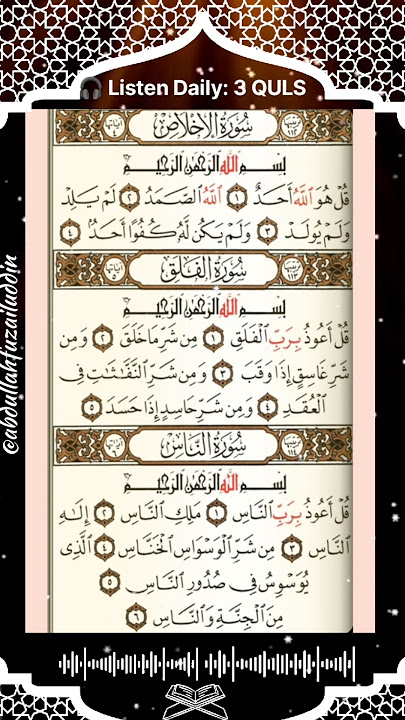 🎧 Listen Daily: 3 QULS
سُورَةُ الإِخْلَاصِ
بِسْمِ اللَّهِ الرَّحْمَٰنِ الرَّحِيمِ
قُلْ هُوَ اللَّهُ أَحَدٌ ١ اللَّهُ الصَّمَدُ ٢ لَمْ يَلِدْ
وَلَمْ يُولَدْ ٣ وَلَمْ يَكُن لَّهُ كُفُوًا أَحَدٌ ٤
سُورَةُ الفَلَقِ
بِسْمِ اللَّهِ الرَّحْمَٰنِ الرَّحِيمِ
قُلْ أَعُوذُ بِرَبِّ الْفَلَقِ ١ مِن شَرِّ مَا خَلَقَ ٢ وَمِن
شَرِّ غَاسِقٍ إِذَا وَقَبَ ٣ وَمِن شَرِّ النَّفَّاثَاتِ فِي
الْعُقَدِ ٤ وَمِن شَرِّ حَاسِدٍ إِذَا حَسَدَ ٥
سُورَةُ النَّاسِ
بِسْمِ اللَّهِ الرَّحْمَٰنِ الرَّحِيمِ
قُلْ أَعُوذُ بِرَبِّ النَّاسِ ١ مَلِكِ النَّاسِ ٢ إِلَٰهِ
النَّاسِ ٣ مِن شَرِّ الْوَسْوَاسِ الْخَنَّاسِ ٤ الَّذِي
يُوَسْوِسُ فِي صُدُورِ النَّاسِ ٥
مِنَ الْجِنَّةِ وَالنَّاسِ ٦
@abdullahfuzailuddin